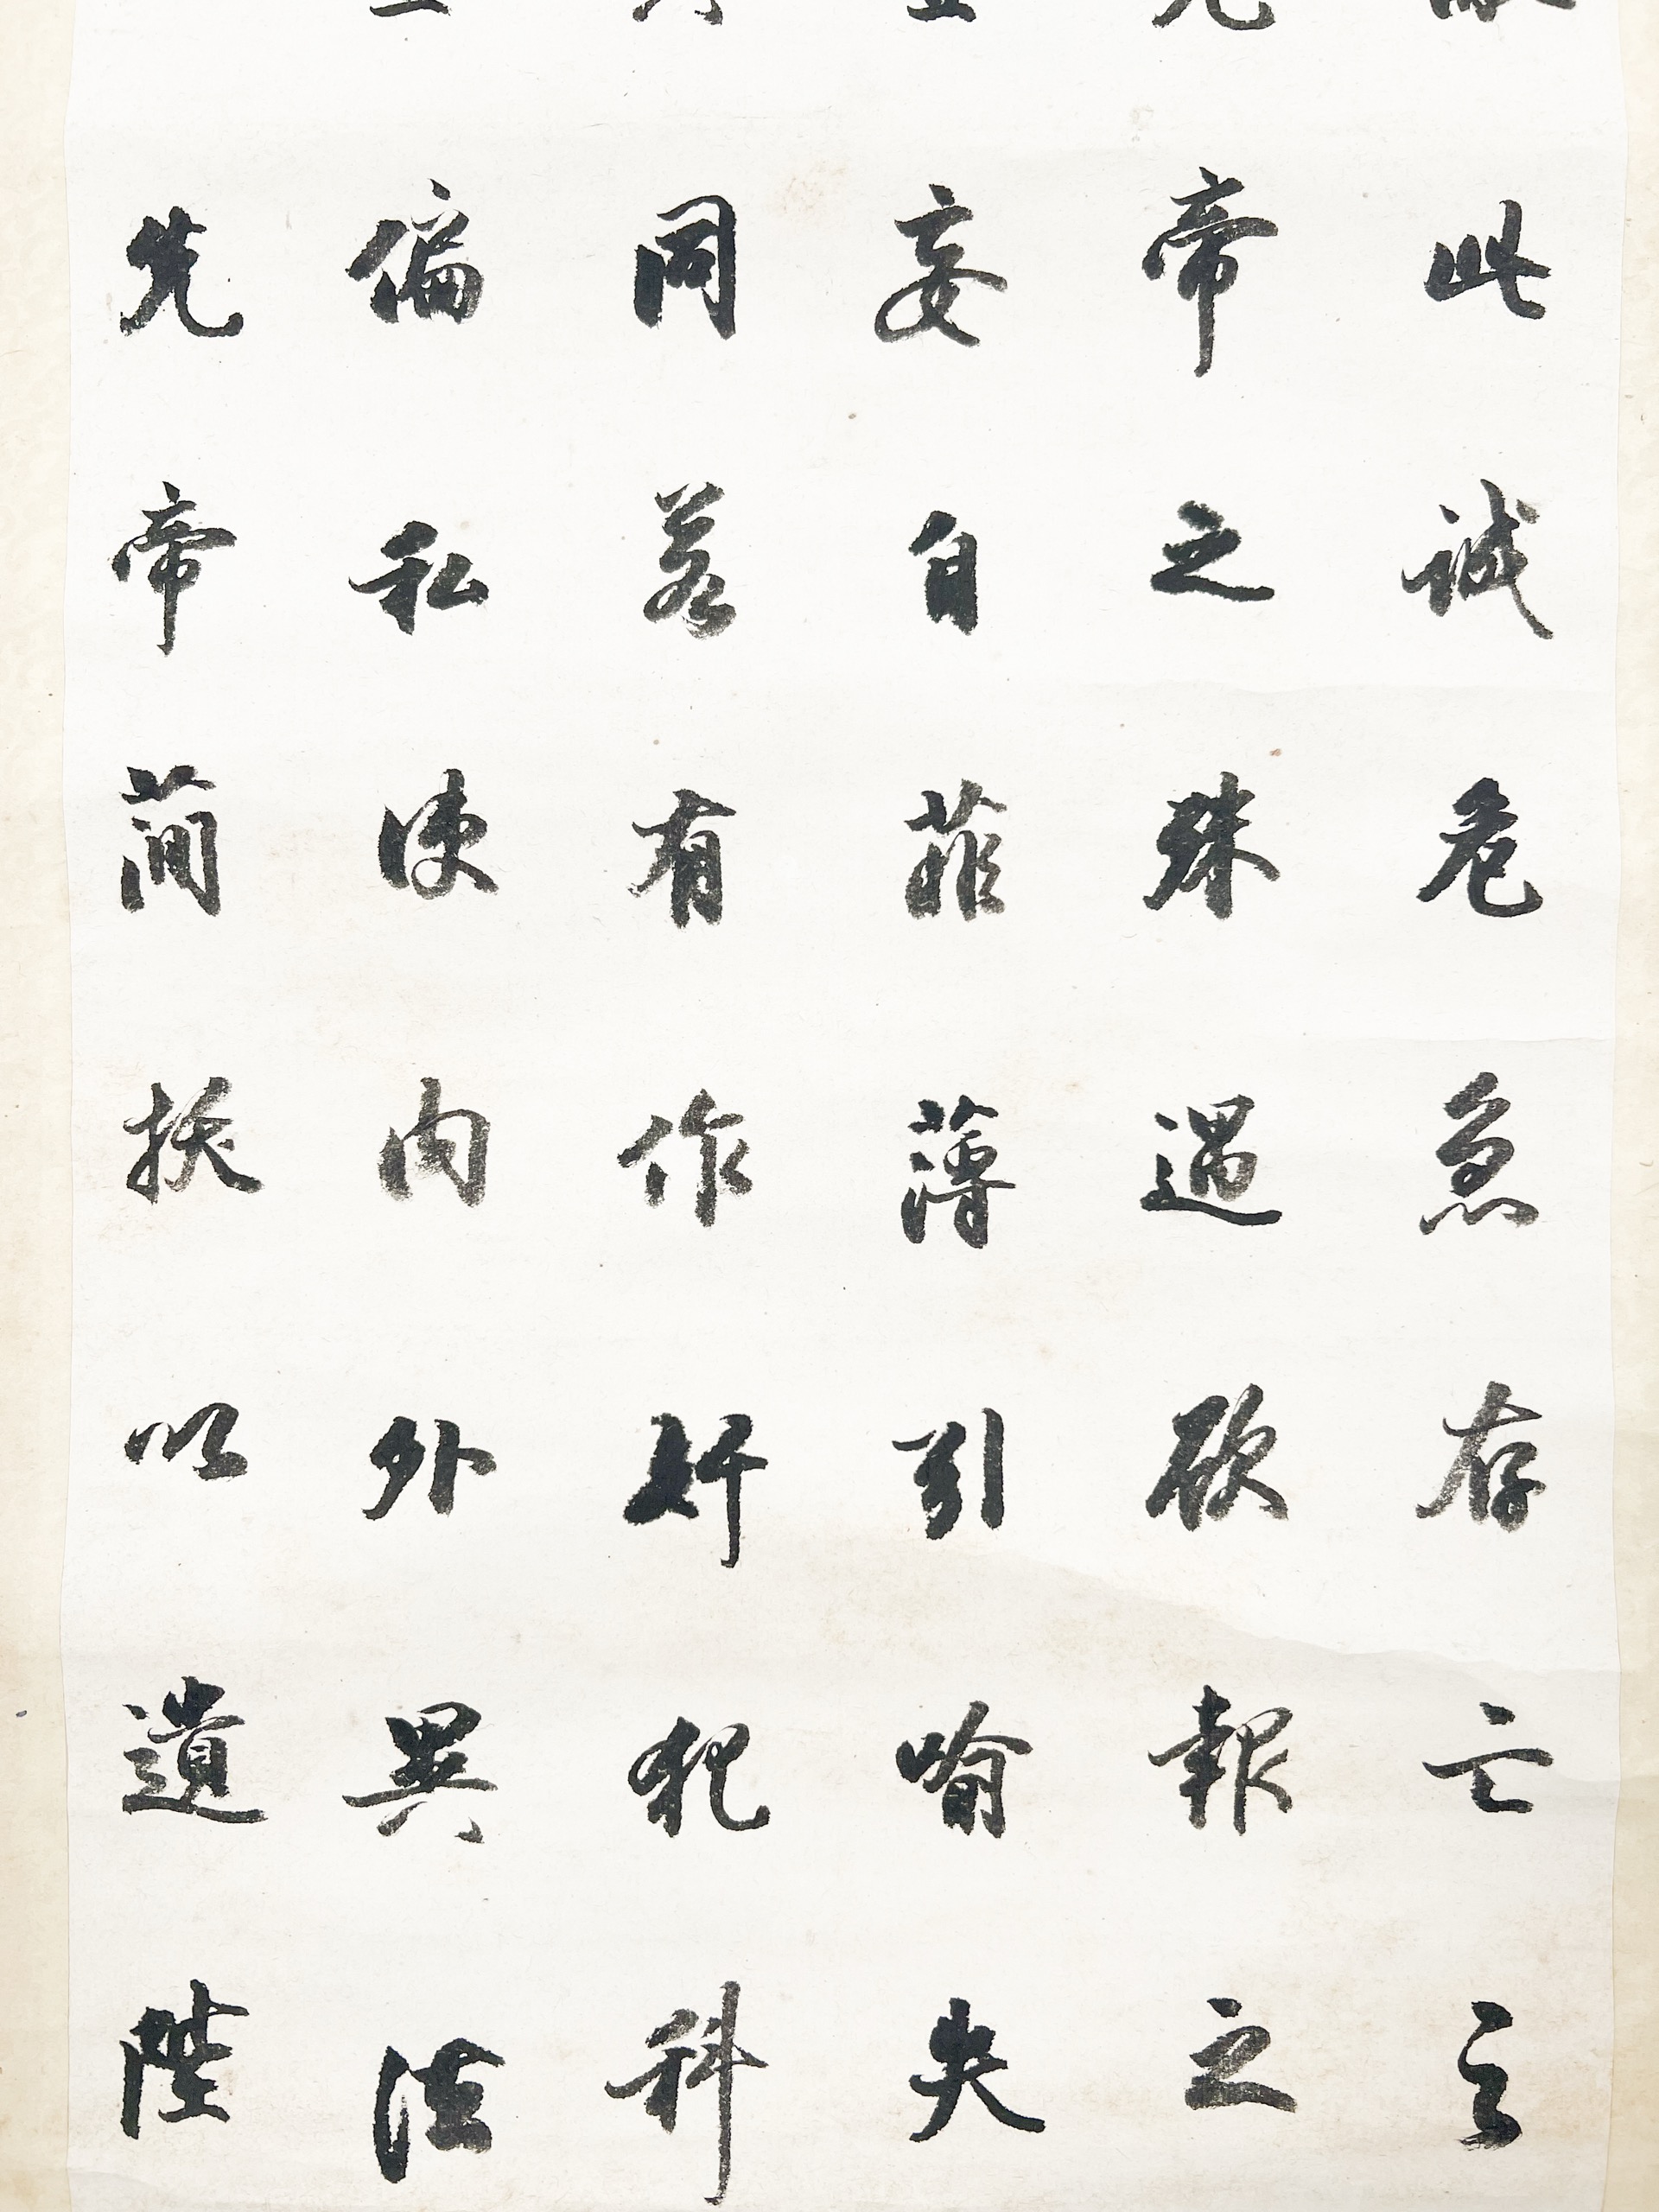 此誠危急存亡之
帝之殊遇欲報之
妄自菲薄引喻失
同若有作奸犯科
偏私使內外異法
先帝蕳拔以遺陛